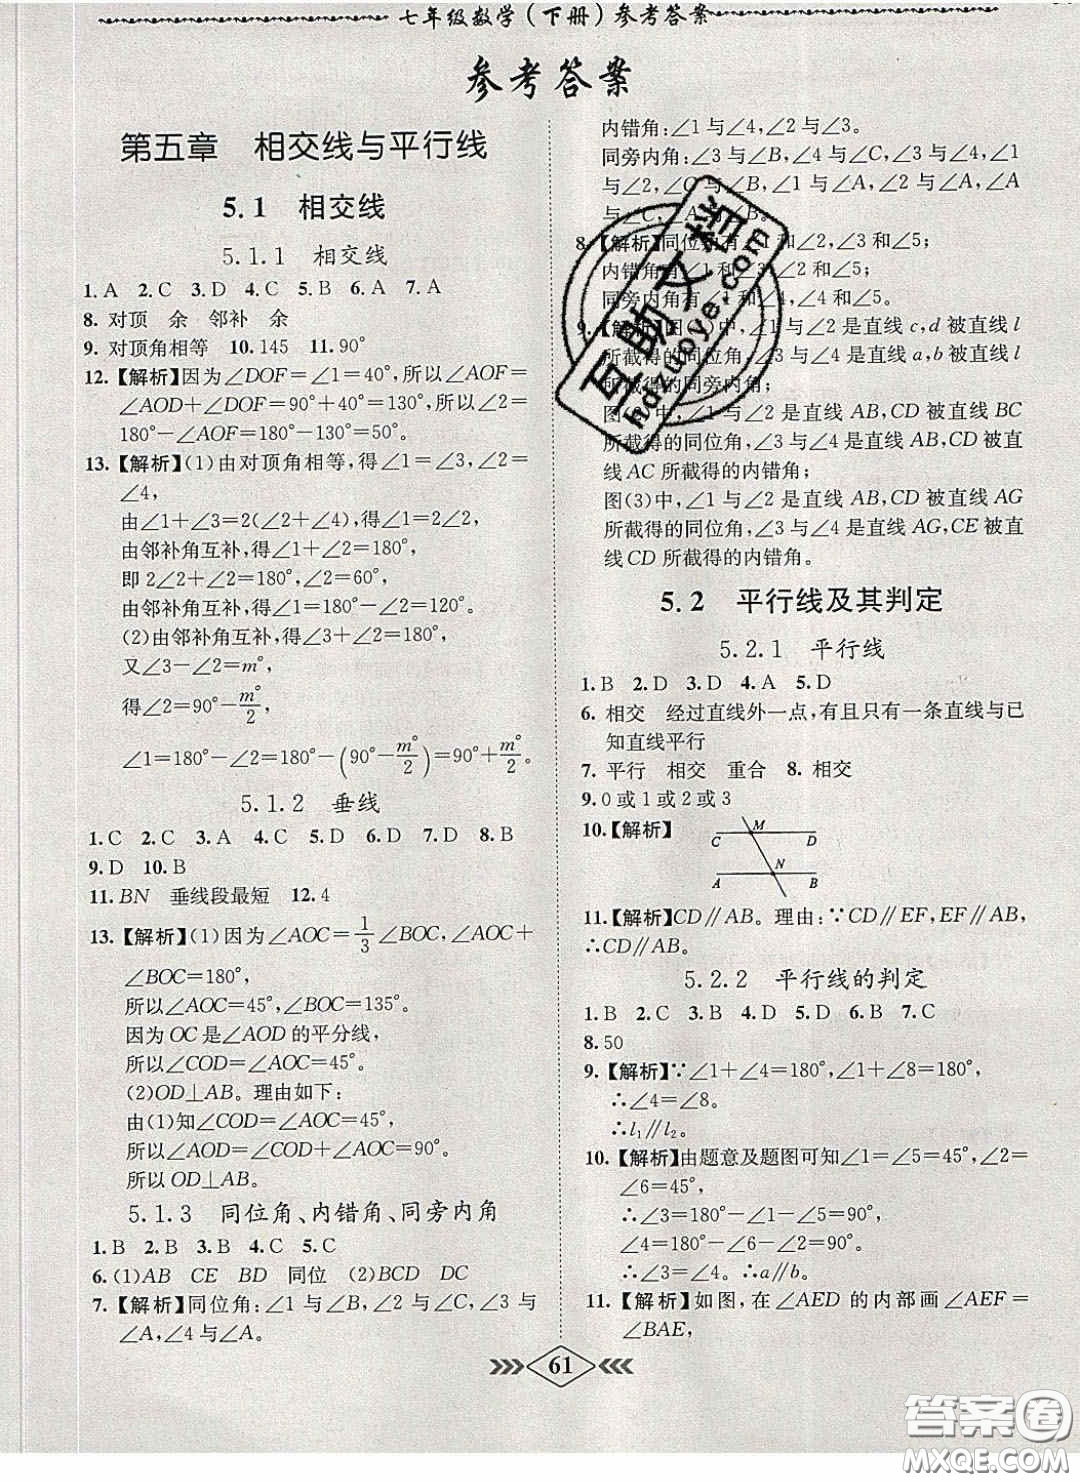 七年级数学(下册)参考答案
参考答案
第五章 相交线与平行线
5.1 相交线
5.1.1 相交线
1.A 2.C 3.D 4.C 5.B 6.A 7.A
8.对顶 余 邻补 余
9.对顶角相等 10.145 11.90°
12.【解析】因为∠DOF=∠1=40°,所以∠AOF=
∠AOD+∠DOF=90°+40°=130°,所以∠2=
180°-∠AOF=180°-130°=50°。
13.【解析】(1)由对顶角相等,得∠1=∠3,∠2=
∠4,
由∠1+∠3=2(∠2+∠4),得∠1=2∠2,
由邻补角互补,得∠1+∠2=180°,
即2∠2+∠2=180°,∠2=60°,
由邻补角互补,得∠1=180°-∠2=120°。
(2)由邻补角互补,得∠3+∠2=180°,
又∠3-∠2=m°,
得∠2=90°-m°/2,
∠1=180°-∠2=180°-(90°-m°/2)=90°+m°/2。
5.1.2 垂线
1.C 2.C 3.A 4.C 5.D 6.D 7.D 8.B
9.D 10.B
11.BN 垂线段最短 12.4
13.【解析】(1)因为∠AOC=1/3∠BOC,∠AOC+
∠BOC=180°,
所以∠AOC=45°,∠BOC=135°。
因为OC是∠AOD的平分线,
所以∠COD=∠AOC=45°。
(2)OD⊥AB。理由如下:
由(1)知∠COD=∠AOC=45°,
所以∠AOD=∠COD+∠AOC=90°。
所以OD⊥AB。
5.1.3 同位角、内错角、同旁内角
1.B 2.B 3.B 4.C 5.C
6.(1)AB CE BD 同位 (2)BCD DC
7.【解析】同位角:∠1与∠B,∠2与∠C,∠3与
∠A,∠4与∠A。
内错角:∠1与∠4,∠2与∠3。
同旁内角:∠3与∠B,∠4与∠C,∠3与∠4,∠1
与∠2,∠C与∠B,∠1与∠A,∠2与∠A,∠A
与∠C,∠A与∠B。
8.【解析】同位角有∠1和∠2,∠3和∠5;
内错角有∠1和∠3,∠2和∠5;
同旁内角有∠1和∠4,∠4和∠5。
9.【解析】图(1)中,∠1与∠2是直线c,d被直线l
所截得的同位角,∠3与∠4是直线a,b被直线l
所截得的同旁内角;
图(2)中,∠1与∠2是直线AB,CD被直线BC
所截得的同位角,∠3与∠4是直线AB,CD被直
线AC所截得的内错角;
图(3)中,∠1与∠2是直线AB,CD被直线AG
所截得的同位角,∠3与∠4是直线AG,CE被直
线CD所截得的内错角。
5.2 平行线及其判定
5.2.1 平行线
1.B 2.D 3.D 4.A 5.D
6.相交 经过直线外一点,有且只有一条直线与已
知直线平行
7.平行 相交 重合 8.相交
9.0或1或2或3
10.【解析】
M
C D
N
A B
11.【解析】CD∥AB。理由:∵CD∥EF,EF∥AB,
∴CD∥AB。
5.2.2 平行线的判定
1.B 2.C 3.B 4.D 5.D 6.B 7.C
8.50
9.【解析】∵∠1+∠4=180°,∠1+∠8=180°,
∴∠4=∠8。
∴l₁∥l₂。
10.【解析】由题意及题图可知∠1=∠5=45°,∠2=
∠6=45°,
∴∠3=180°-∠1-∠5=90°,
∠4=180°-∠6-∠2=90°。
∴∠3=∠4。∴a∥b。
11.【解析】如图,在∠AED的内部画∠AEF=
∠BAE,
61
互助文档
hdzuoye.com
答案圈
MXQE.COM